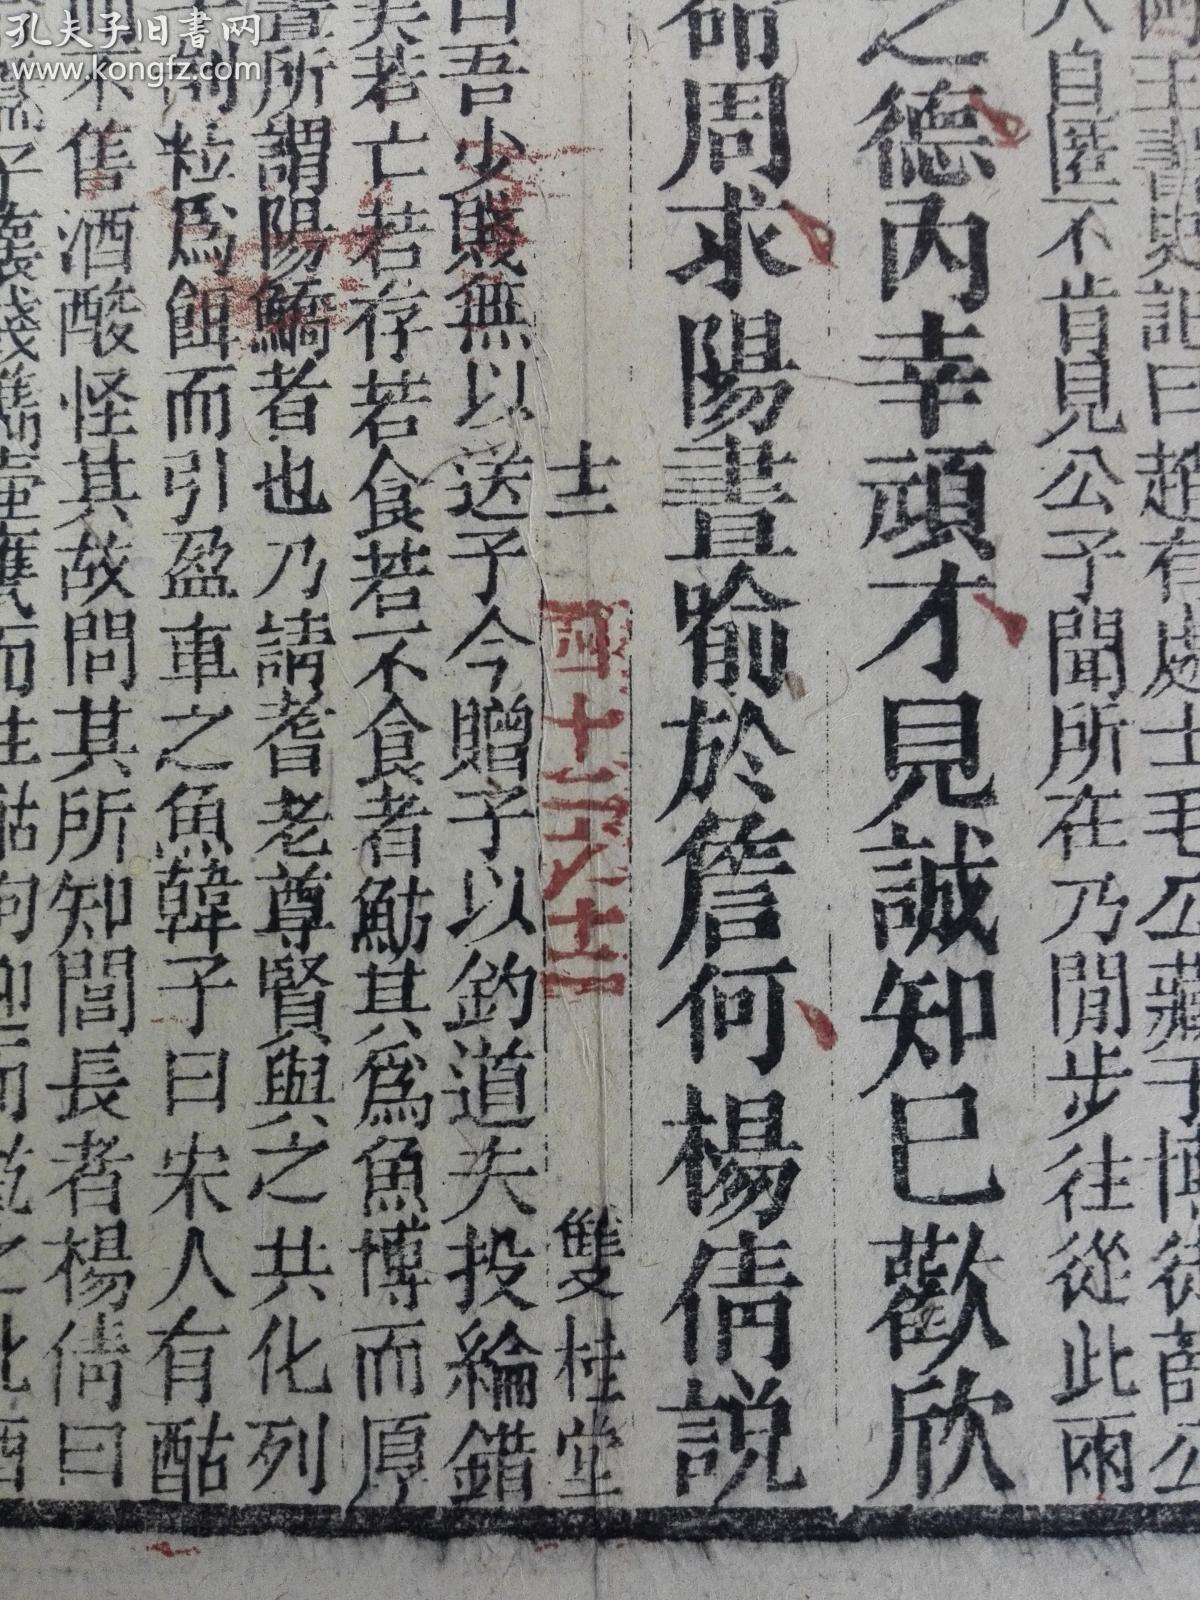 孔夫子旧書网
www.kongfz.com
史記曰趙有處士毛公藏于博徒薛公
自匿不肯見公子聞所在乃閒步往從此兩
之德内幸頑才見誠知已歡欣
命周求陽晝喻於詹何楊倩説
十二
四十三之十二
雙桂堂
曰吾少賤無以送子今贈子以釣道夫投綸錯
矣若亡若存若食若不食者魴其爲魚博而厚
晝所謂陽鱎者也乃請耆老尊賢與之共化列
粒爲餌而引盈車之魚韓子曰宋人有酤
不售酒酸怪其故問其所知閭長者楊倩曰
壺甕而往酤狗迎而